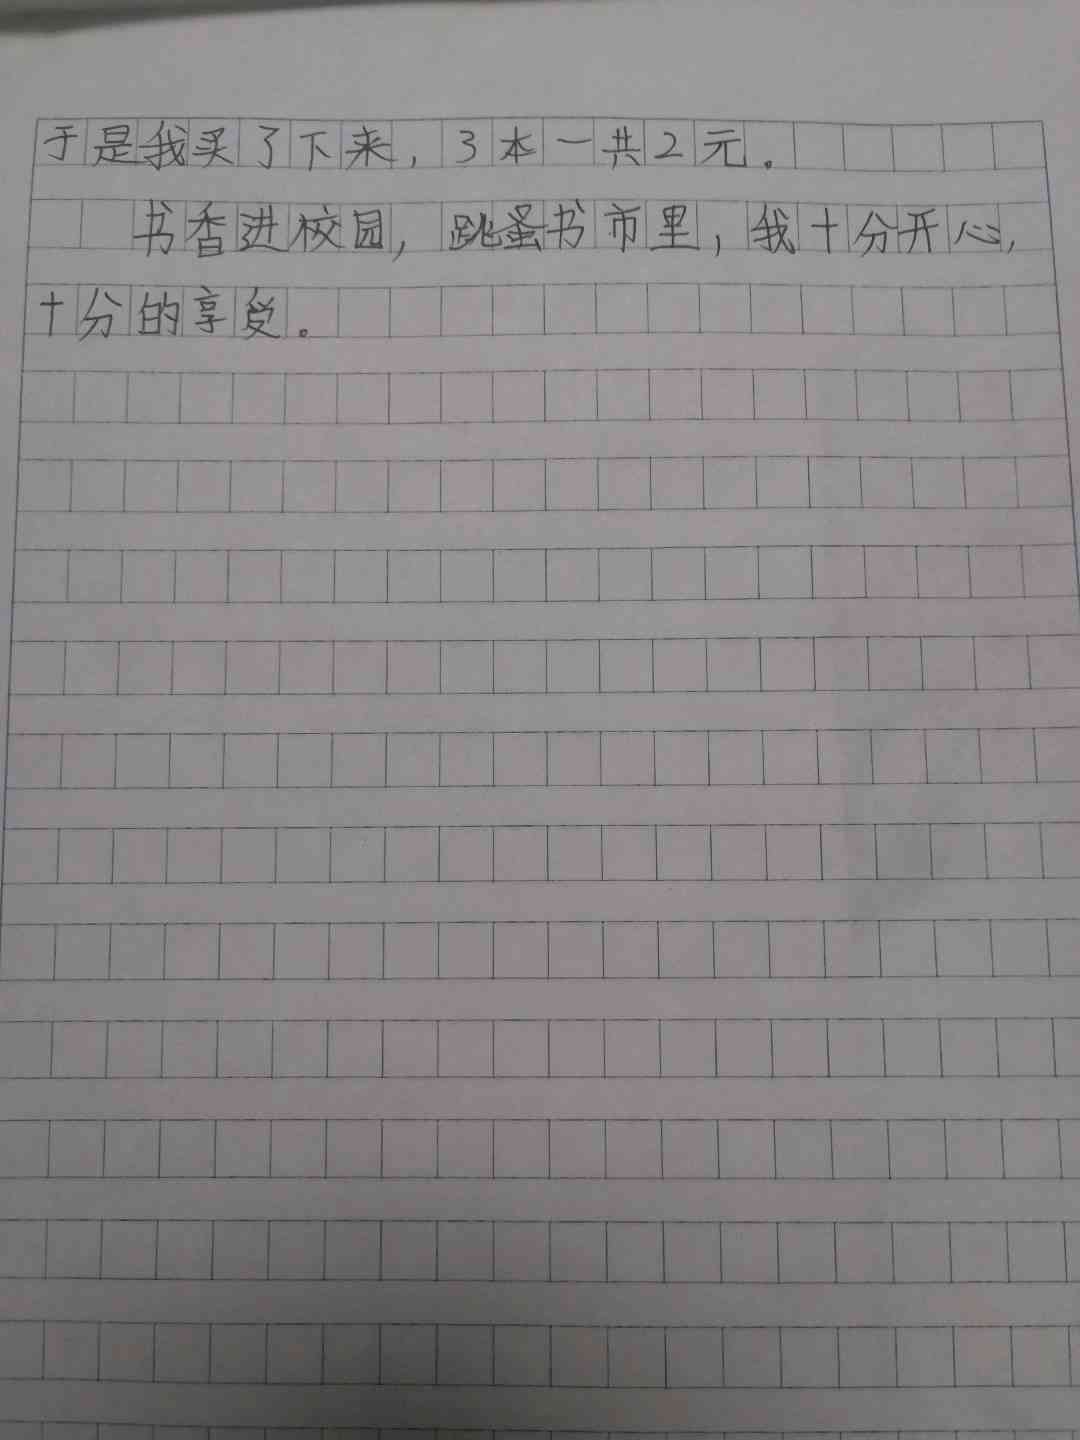 于是我买了下来，3本一共2元。
书香进校园，跳蚤书市里，我十分开心，
十分的享受。